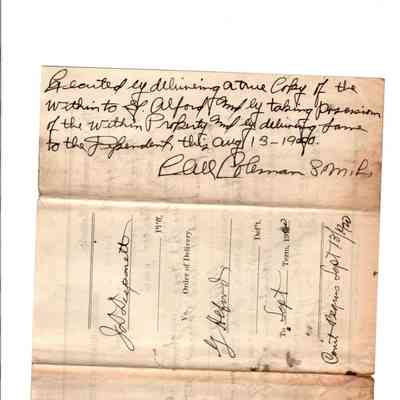 Executed by delivering a true Copy of the
within to G. Alford, And by taking Possession
of the within Property And by delivering same
to the Defendent, this Aug 13 - 1920.
Coleman S.M.
Pltff.
Vs. Order of Delivery.
G Alford
Deft.
To Sept Term, 19
Court Begins Sept 13/1920